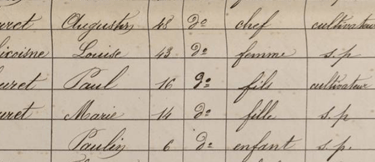 uret Augustin 48 do chef cultivateur
icoisne Louise 43 do femme s.p
uret Paul 16 do fils cultivateur
uret Marie 14 do fille s.p
Paulin 6 do enfant s.p.